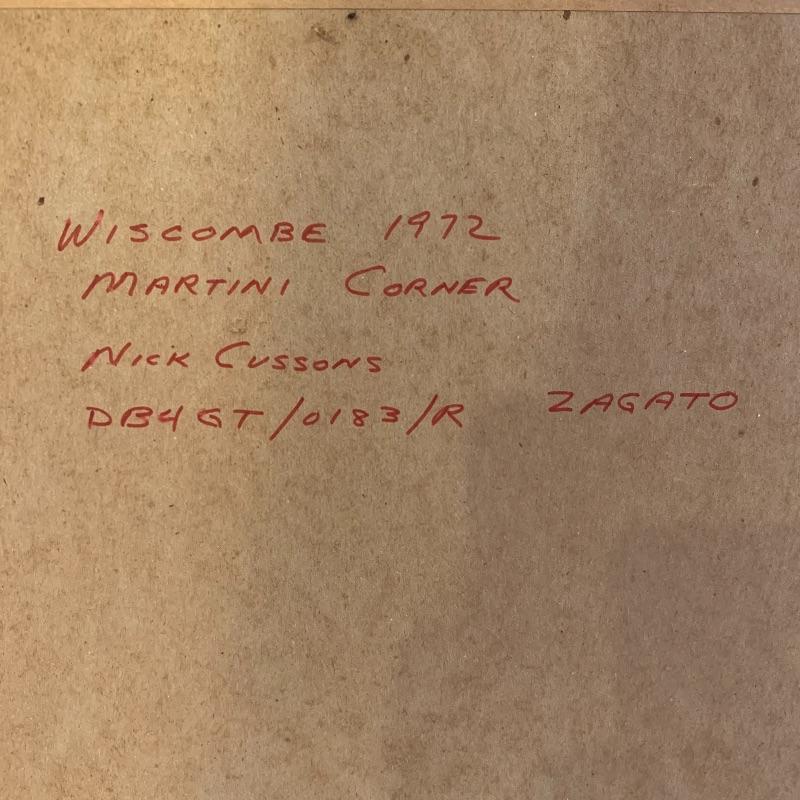 WISCOMBE 1972
MARTINI CORNER
NICK CUSSONS
DB4GT/0183/R ZAGATO